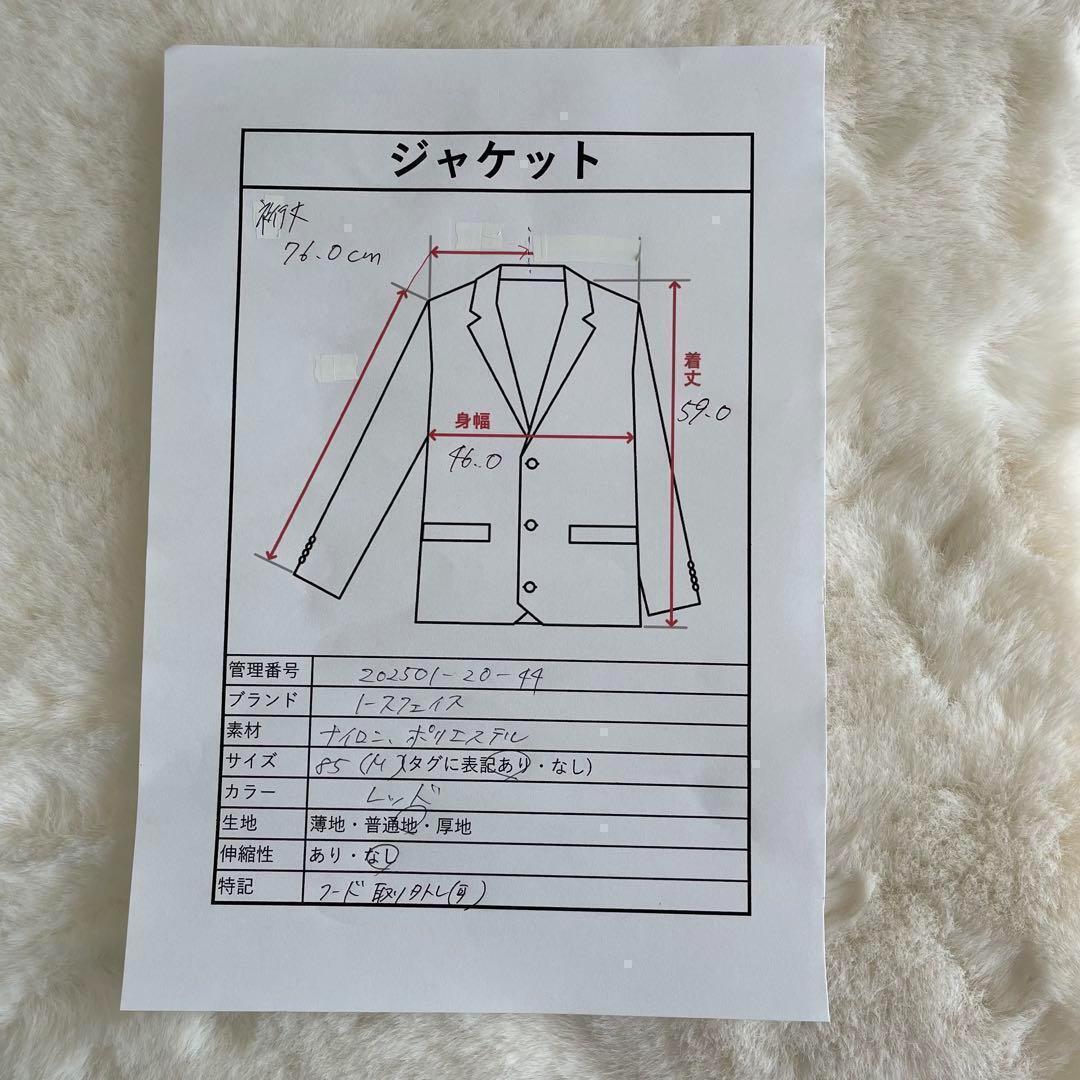 ジャケット
裄丈
76.0cm
着丈
59.0
身幅
46.0
管理番号 202501-20-44
ブランド ノースフェイス
素材 ナイロン、ポリエステル
サイズ 85(M)(タグに表記あり・なし)
カラー レッド
生地 薄地・普通地・厚地
伸縮性 あり・なし
特記 フード取リ外し(可)